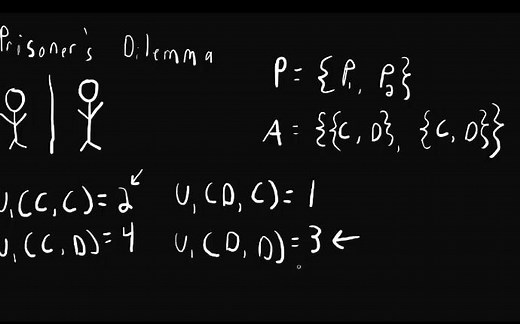 Prisoner's Dilemma
P = {P₁, P₂}
A = {{C, D}, {C, D}}
U₁(C, C) = 2 U₁(D, C) = 1
U₁(C, D) = 4 U₁(D, D) = 3 ←